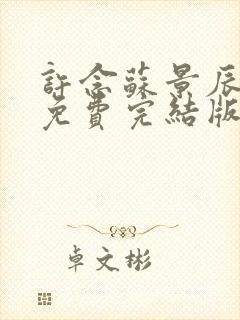 許念蘇景辰
免費完結版
卓文彬